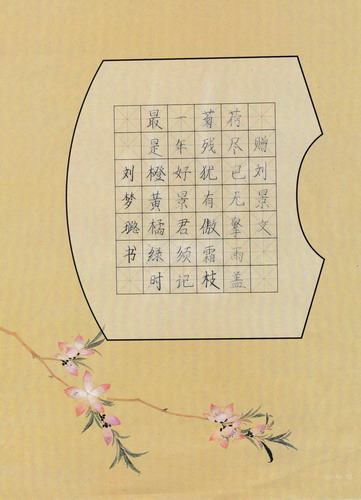 赠刘景文
荷尽已无擎雨盖
菊残犹有傲霜枝
一年好景君须记
最是橙黄橘绿时
刘梦璐书